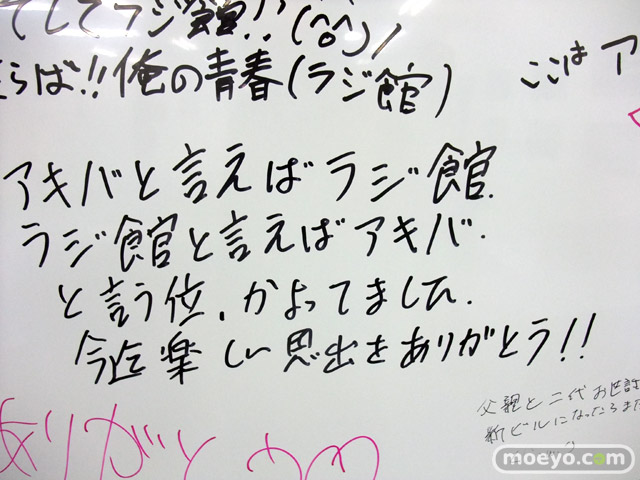 てしてラジ館!!(^o^)/
らば!!俺の青春(ラジ館)
ここは ア
アキバと言えばラジ館.
ラジ館と言えばアキバ.
と言う位、かよってました.
今迄楽しい思出をありがとう!!
ありがとう
父親と二代お世話
新ビルになったらまた
moeyo.com